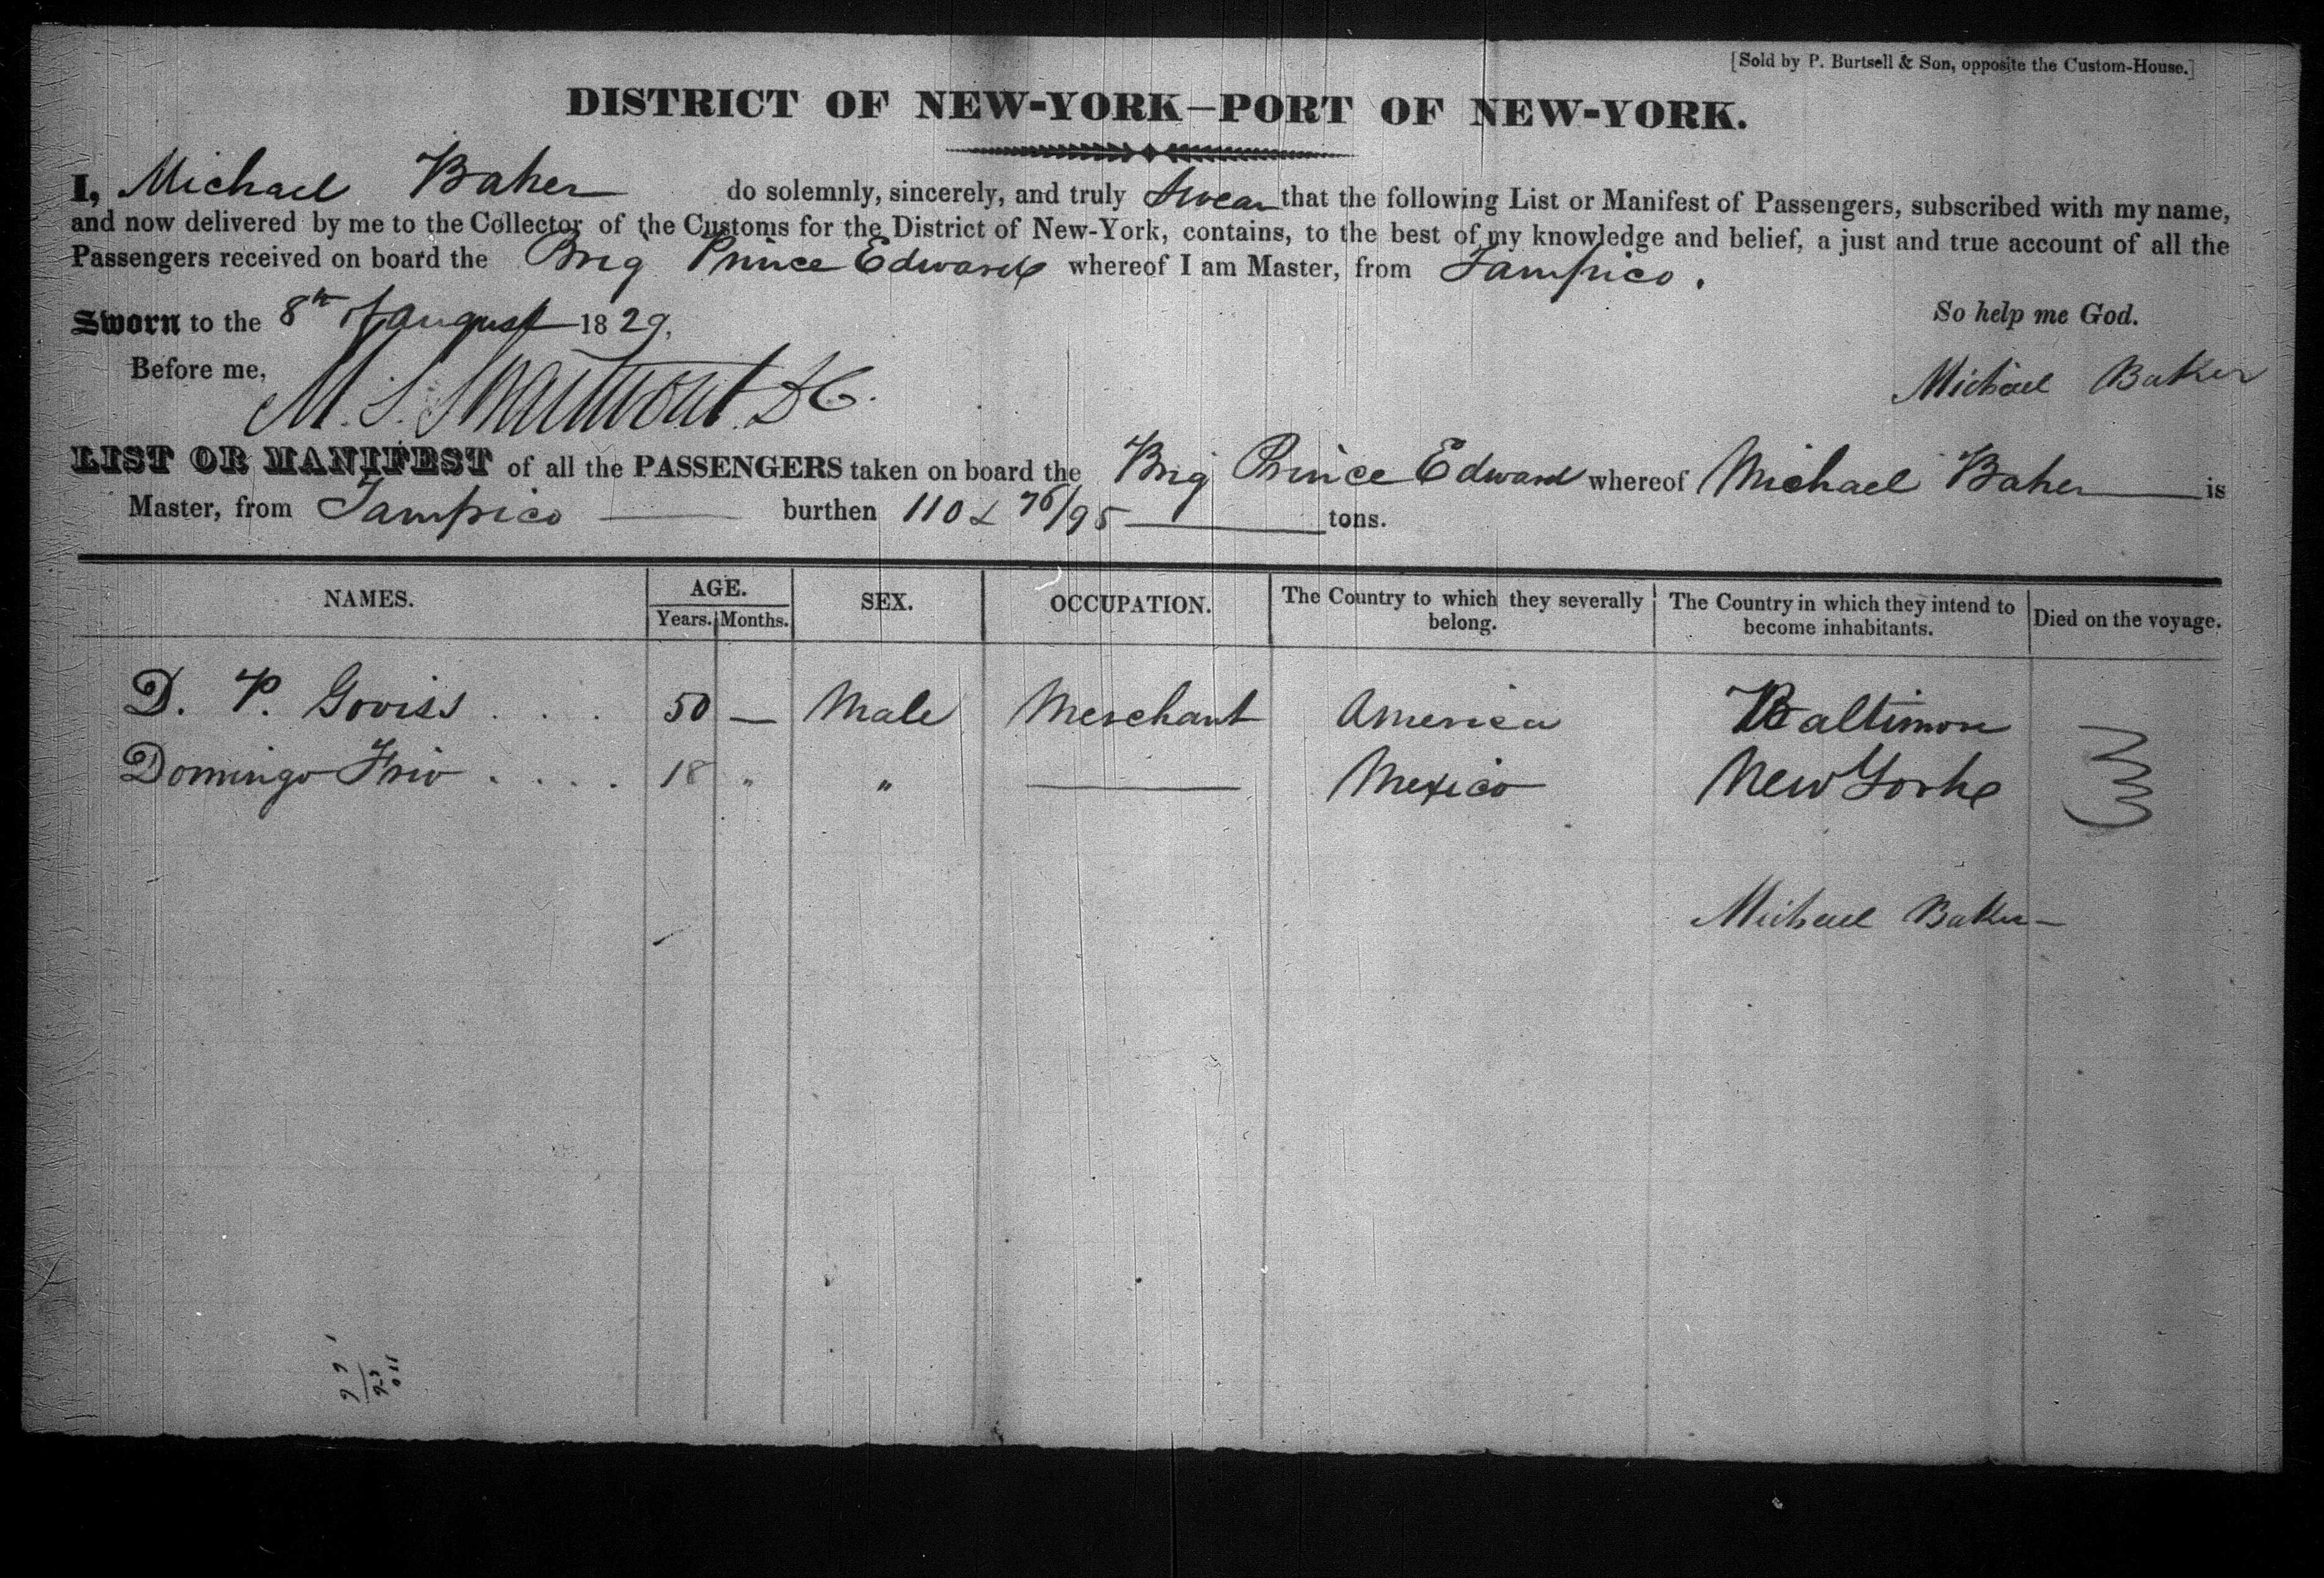 [Sold by P. Burtsell & Son, opposite the Custom-House.]
DISTRICT OF NEW-YORK—PORT OF NEW-YORK.
I, Michael Baker do solemnly, sincerely, and truly Swear that the following List or Manifest of Passengers, subscribed with my name,
and now delivered by me to the Collector of the Customs for the District of New-York, contains, to the best of my knowledge and belief, a just and true account of all the
Passengers received on board the Brig Prince Edward whereof I am Master, from Tampico.
Sworn to the 8th of August 1829. So help me God.
Before me, Michael Baker
M. S. Swartwout D C.
LIST OR MANIFEST of all the PASSENGERS taken on board the Brig Prince Edward whereof Michael Baker is
Master, from Tampico burthen 110 & 76/95 tons.
NAMES. AGE. SEX. OCCUPATION. The Country to which they severally belong. The Country in which they intend to become inhabitants. Died on the voyage.
Years. Months.
D. P. Goviss . . . 50 — Male Merchant America Baltimore
Domingo Frio . . . . 18 " " — Mexico New York
Michael Baker